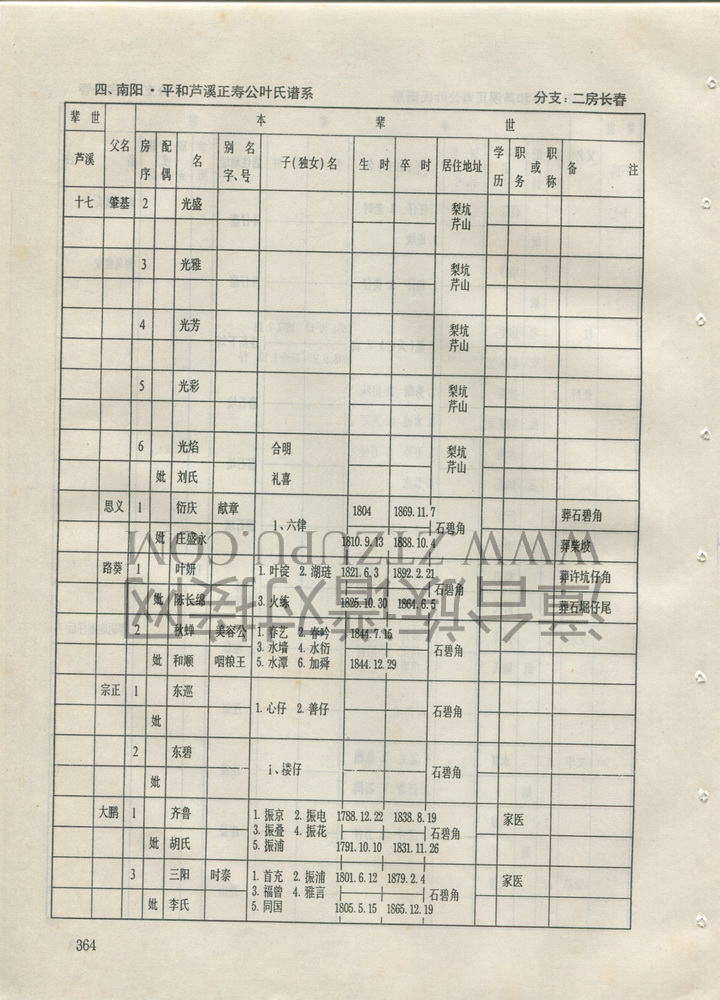 四、南阳·平和芦溪正寿公叶氏谱系 分支：二房长春
辈世 本辈世
芦溪 父名 房序 配偶 名 别名字、号 子(独女)名 生时 卒时 居住地址 学历 职务或职称 备注
十七 肇基 2 光盛 梨坑芹山
3 光雅 梨坑芹山
4 光芳 梨坑芹山
5 光彩 梨坑芹山
6 光焰 合明 梨坑芹山
妣 刘氏 礼喜
思义 1 衍庆 献章 1、六律 1804 1869.11.7 石碧角 葬石碧角
妣 庄盛永 1810.9.13 1888.10.4 葬柴坡
路葵 1 叶妍 1.叶淀 2.湖琏 1821.6.3 1892.2.21 石碧角 葬许坑仔角
妣 陈长绵 3.火练 1825.10.30 1864.6.5 葬石堀仔尾
2 秋蝉 美容公 1.春艺 2.春吟 1844.7.15 石碧角
3.水墙 4.水衍
妣 和顺 咽粮王 5.水潭 6.加舜 1844.12.29
宗正 1 东巡 1.心仔 2.善仔 石碧角
妣
2 东碧 1、楼仔 石碧角
妣
大鹏 1 齐鲁 1.振京 2.振电 1788.12.22 1838.8.19 石碧角 家医
3.振叠 4.振花
妣 胡氏 5.振浦 1791.10.10 1831.11.26
3 三阳 时泰 1.首充 2.振浦 1801.6.12 1879.2.4 石碧角 家医
3.福曾 4.雅言
妣 李氏 5.同国 1805.5.15 1865.12.19
364
WWW.ZIZUPU.COM
漳台族谱对接网